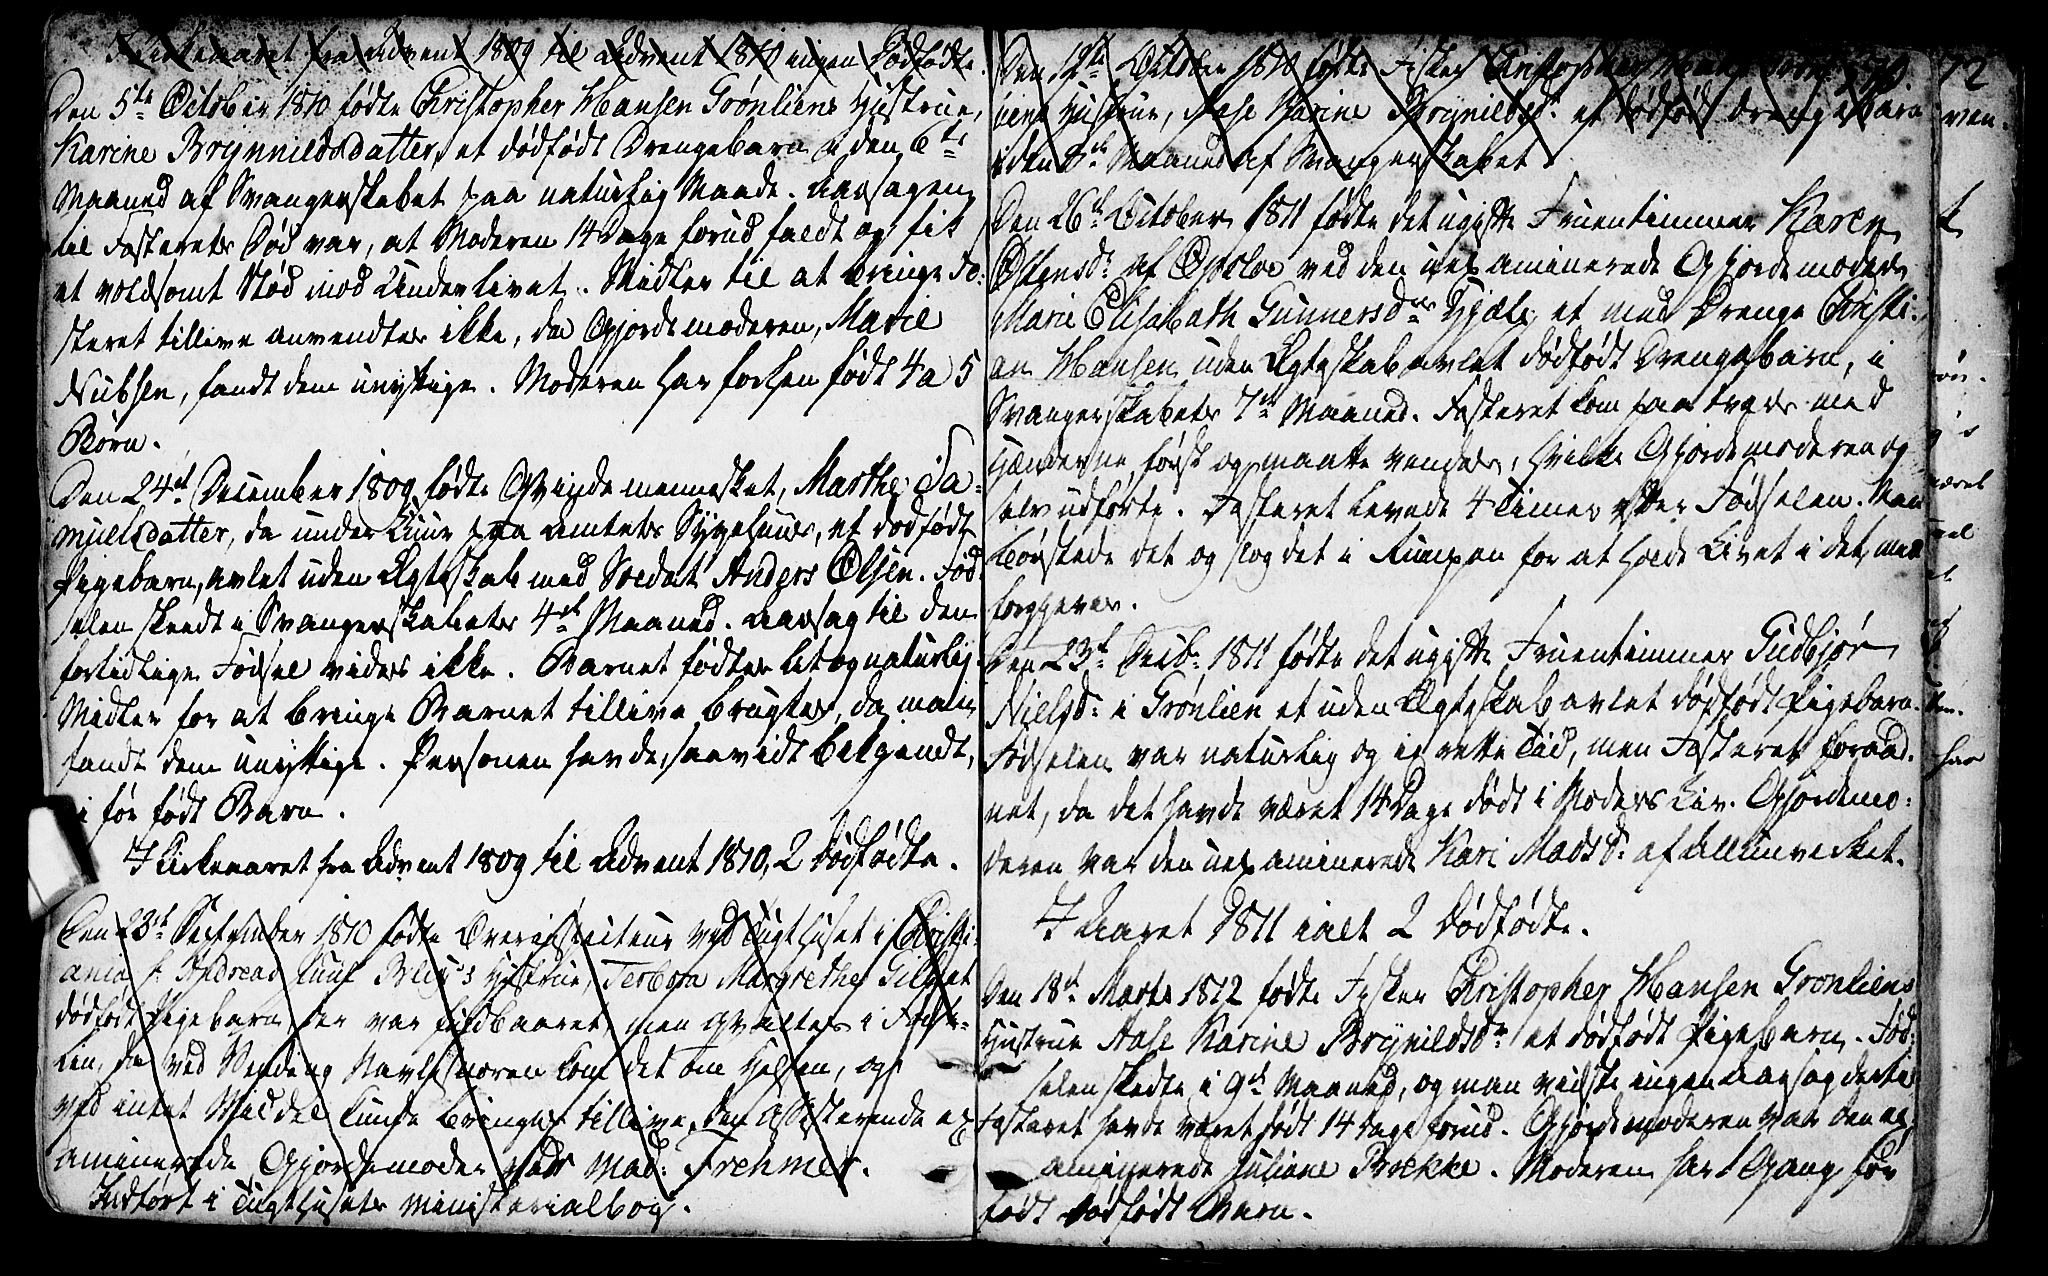 I Kirkeaaret fra Advent 1809 til Advent 1810 ingen Dødfødte.
Den 5te October 1810 fødte Christopher Hansen Grønliens Hustrue,
Karine Brynnildsdatter, et dødfødt Drengebarn i den 6te
Maaned af Svangerskabet paa naturlig Maade. Aarsagen
til Fosterets Død var, at Moderen 14 Dage forud faldt og fik
et voldsomt Stød mod Underlivet. Midler til at bringe Fo-
steret tillive anvendtes ikke, da Gjordemoderen, Marie
Nubsen, fandt dem unyttige. Moderen har forhen født 4 a 5
Børn.
Den 24de December 1809 fødte Qvindemennesket, Marthe Sa-
muelsdatter, da under Cuur paa Amtets Sygehuus, et dødfødt
Pigebarn, avlet uden Ægteskab med Soldat Anders Olsen. Fød-
selen skeedt i Svangerskabets 4de Maaned. Aarsag til den
fortidlige Fødsel vides ikke. Barnet fødtes let og naturlig
Midler for at bringe Barnet tillive brugtes, da man
fandt dem unyttige. Personen havde, saavidt bekjendt,
ei før født Barn.
I Kirkeaaret fra Advent 1809 til Advent 1810, 2 dødfødte.
Den 23de September 1810 fødte Overinspecteur ved Tugthuset i Christi-
ania Hr Andreas Juul Hustrue, Margrethe et
dødfødt Pigebarn, der var fuldbaaret, men qvaltes i Føds-
len, da ved Vending Navlesnoren kom det om Halsen, og
ved intet Middel kunde bringes tillive. Den assisterende ex-
aminerede Gjordemoder var Mad: Frehmer.
Indført i Tugthusets Ministerialbog.
Den October 1810 fødte Fisker Christopher Hansen
liens Hustrue, Aase Karine Brynildsdr et dødfødt Drengebarn
i den Maaned af Svangerskabet
Den 26de October 1811 fødte det ugifte Fruentimmer Karen
Olsensdr af Opsloe ved den uexaminerede Gjordemoder
Marie Elisabeth Gunnersdrs Hjælp et med Drenge Christi-
an Hansen uden Ægteskab avlet dødfødt Drengebarn, i
Svangerskabets 7de Maaned. Fosteret kom paa tvers med
Hænderne først og maatte vendes, hvilke Gjordemoderen og
selv udførte. Fosteret levede 4 Timer efter Fødselen. Man
børstede det og slog det i Rumpen for at holde Livet i det, men
forgjeves.
Den 23de Decbr. 1811 fødte det ugifte Fruentimmer Gudbjør
Nielsdr i Grønlien et uden Ægteskab avlet dødfødt Pigebarn.
Fødselen var naturlig og i rette Tid, men Fosteret foraad-
net, da det havde været 14 Dage dødt i Moders Liv. Gjordemo-
deren var den uexaminerede Kari Madsdr af Allunverket.
I Aaret 1811 ialt 2 Dødfødte.
Den 18de Marts 1812 fødte Fisker Christopher Hansen Grønliens
Hustrue Aase Karine Brynildsdr et dødfødt Pigebarn. Fød-
selen skedte i 9de Maaned, og man vidste ingen Aarsag dertil
Fosteret havde været dødt 14 Dage forud. Gjordemoderen var den ex-
aminerede Juliane Brekke. Moderen har 1 Gang før
født dødfødt Barn.
72